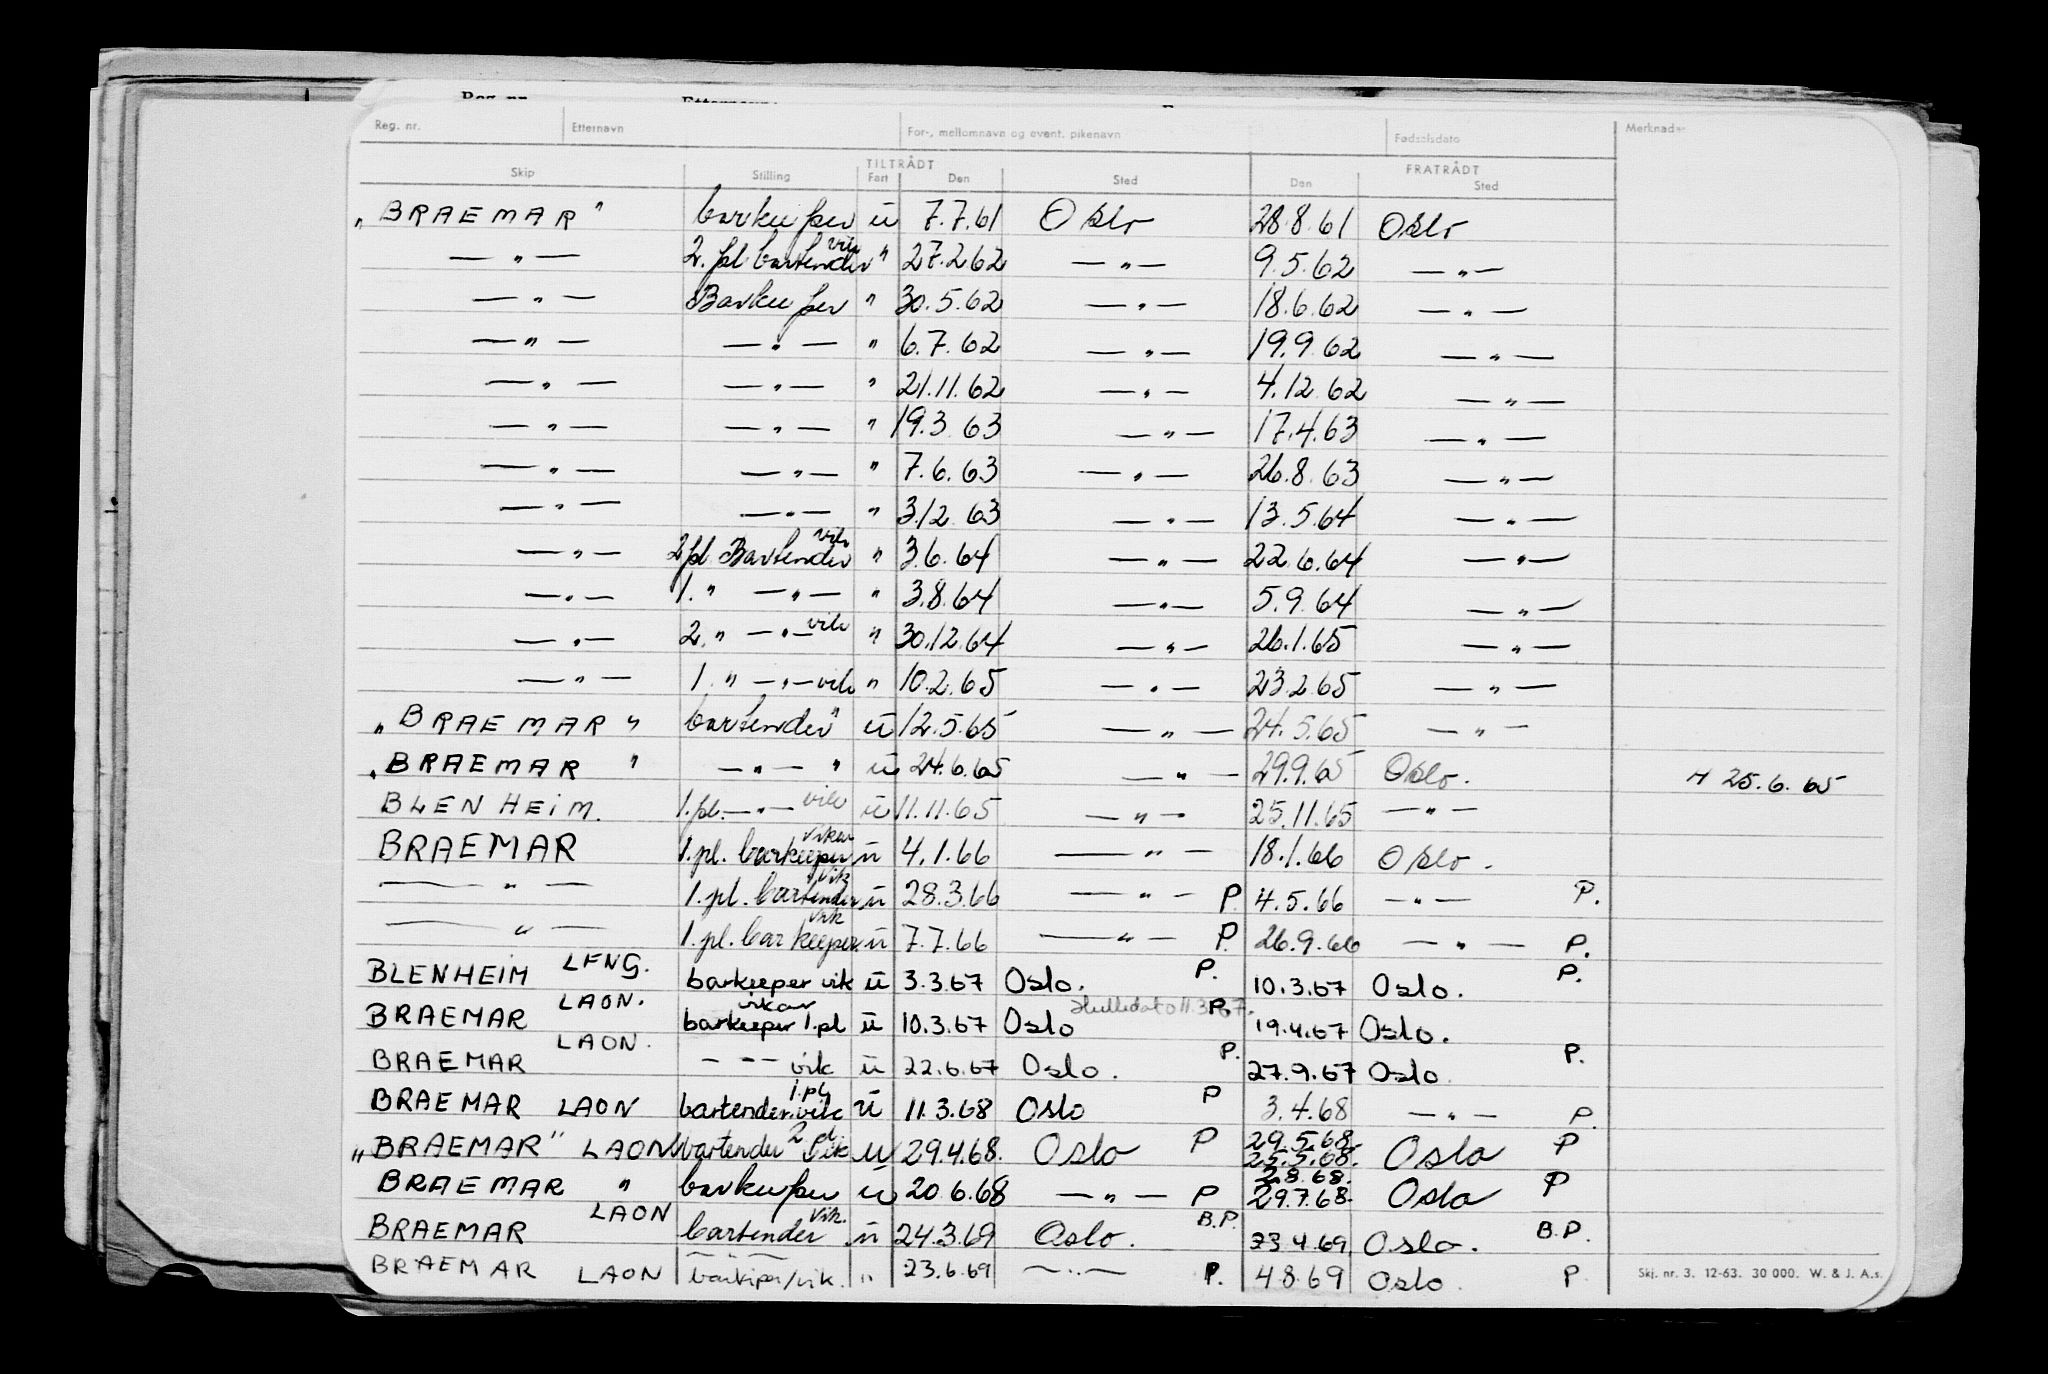 Reg. nr. Etternavn For-, mellomnavn og event. pikenavn Fødselsdato Merknader
TILTRÅDT FRATRÅDT
Skip Stilling Fart Den Sted Den Sted
„BRAEMAR" barkeeper ū 7.7.61 Oslo 28.8.61 Oslo
—„— 2. pl bartender vik " 27.2.62 —„— 9.5.62 —„—
—„— Barkeeper " 30.5.62 —„— 18.6.62 —„—
—„— —„— " 6.7.62 —„— 19.9.62 —„—
—„— —„— " 21.11.62 —„— 4.12.62 —„—
—„— —„— " 19.3.63 —„— 17.4.63 —„—
—„— —„— " 7.6.63 —„— 26.8.63 —„—
—„— —„— " 3.12.63 —„— 13.5.64 —„—
—„— 2 pl Bartender vik " 3.6.64 —„— 22.6.64 —„—
—„— 1. " —„— " 3.8.64 —„— 5.9.64 —„—
—„— 2. " —„— vik " 30.12.64 —„— 26.1.65 —„—
—„— 1. " —„— vik " 10.2.65 —„— 23.2.65 —„—
„BRAEMAR" bartender " ū 12.5.65 —„— 24.5.65 —„—
„BRAEMAR " —„— " ū 24.6.65 —„— 29.9.65 Oslo. H 25.6.65
BLENHEIM. 1.pl. —„— vik ū 11.11.65 —„— 25.11.65 —„—
BRAEMAR 1.pl. barkeeper vikar ū 4.1.66 —„— 18.1.66 Oslo.
—„— 1.pl. bartender vik ū 28.3.66 —„— P. 4.5.66 —„— P.
—„— 1.pl. barkeeper vik ū 7.7.66 —„— P. 26.9.66 —„— P.
BLENHEIM LFNG. barkeeper vik ū 3.3.67 Oslo. P. 10.3.67 Oslo. P.
BRAEMAR LAON. barkeeper 1.pl vikar ū 10.3.67 Oslo Hulledato 11.3.67. P. 19.4.67 Oslo.
BRAEMAR LAON. — — — vik ū 22.6.67 Oslo. P. 27.9.67 Oslo P.
BRAEMAR LAON bartender vik 1.pl ū 11.3.68 Oslo P 3.4.68 —„— P.
„BRAEMAR" LAON bartender 2 pl vik ū 29.4.68. Oslo P 29.5.68. Oslo P
BRAEMAR " barkeeper ū 20.6.68 —„— P 2.8.68. 29.7.68. Oslo P
BRAEMAR LAON bartender vik. ū 24.3.69 Oslo. B.P. 23.4.69 Oslo. B.P.
BRAEMAR LAON barkiper/vik. " 23.6.69 —„— P. 4.8.69 Oslo. P.
Skj. nr. 3. 12-63. 30 000. W. & J. A.s.